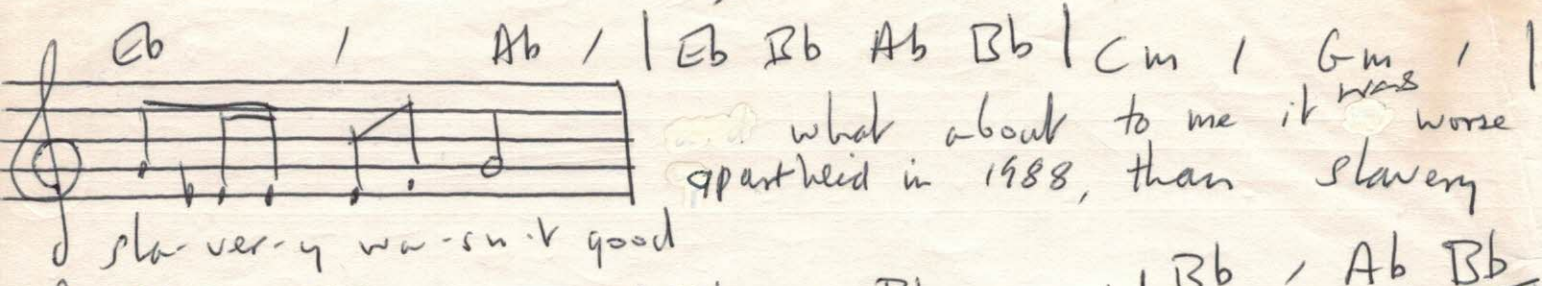 Eb / Ab / | Eb Bb Ab Bb | Cm / Gm / |
what about to me it was worse
apartheid in 1988, than slavery
sla-ver-y wa-sn't good
Bb / Ab Bb